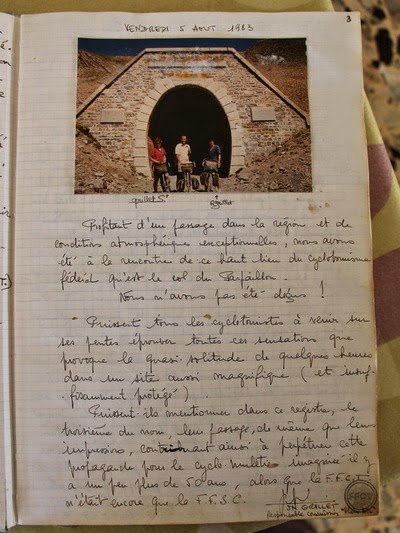 VENDREDI 5 AOUT 1983
3
Profitant d'un passage dans la région et de
conditions atmosphériques exceptionnelles, nous avons
été à la rencontre de ce haut lieu du cyclotourisme
fédéral qu'est le col du Parpaillon.
Nous n'avons pas été déçus !
Puissent tous les cyclotouristes à venir sur
ses pentes éprouver toutes ces sensations que
provoque la quasi-solitude de quelques heures
dans un site aussi magnifique (et insuf-
fisamment protégé).
Puissent-ils mentionner dans ce registre, le
troisième du nom, leur passage, de même que leurs
impressions, contribuant ainsi à perpétuer cette
propagande pour le cyclo-muletier imaginée il y
a un peu plus de 50 ans, alors que la F.F.C.T
n'était encore que la F.F.S.C.
JM GRILLET
Responsable
FFCT